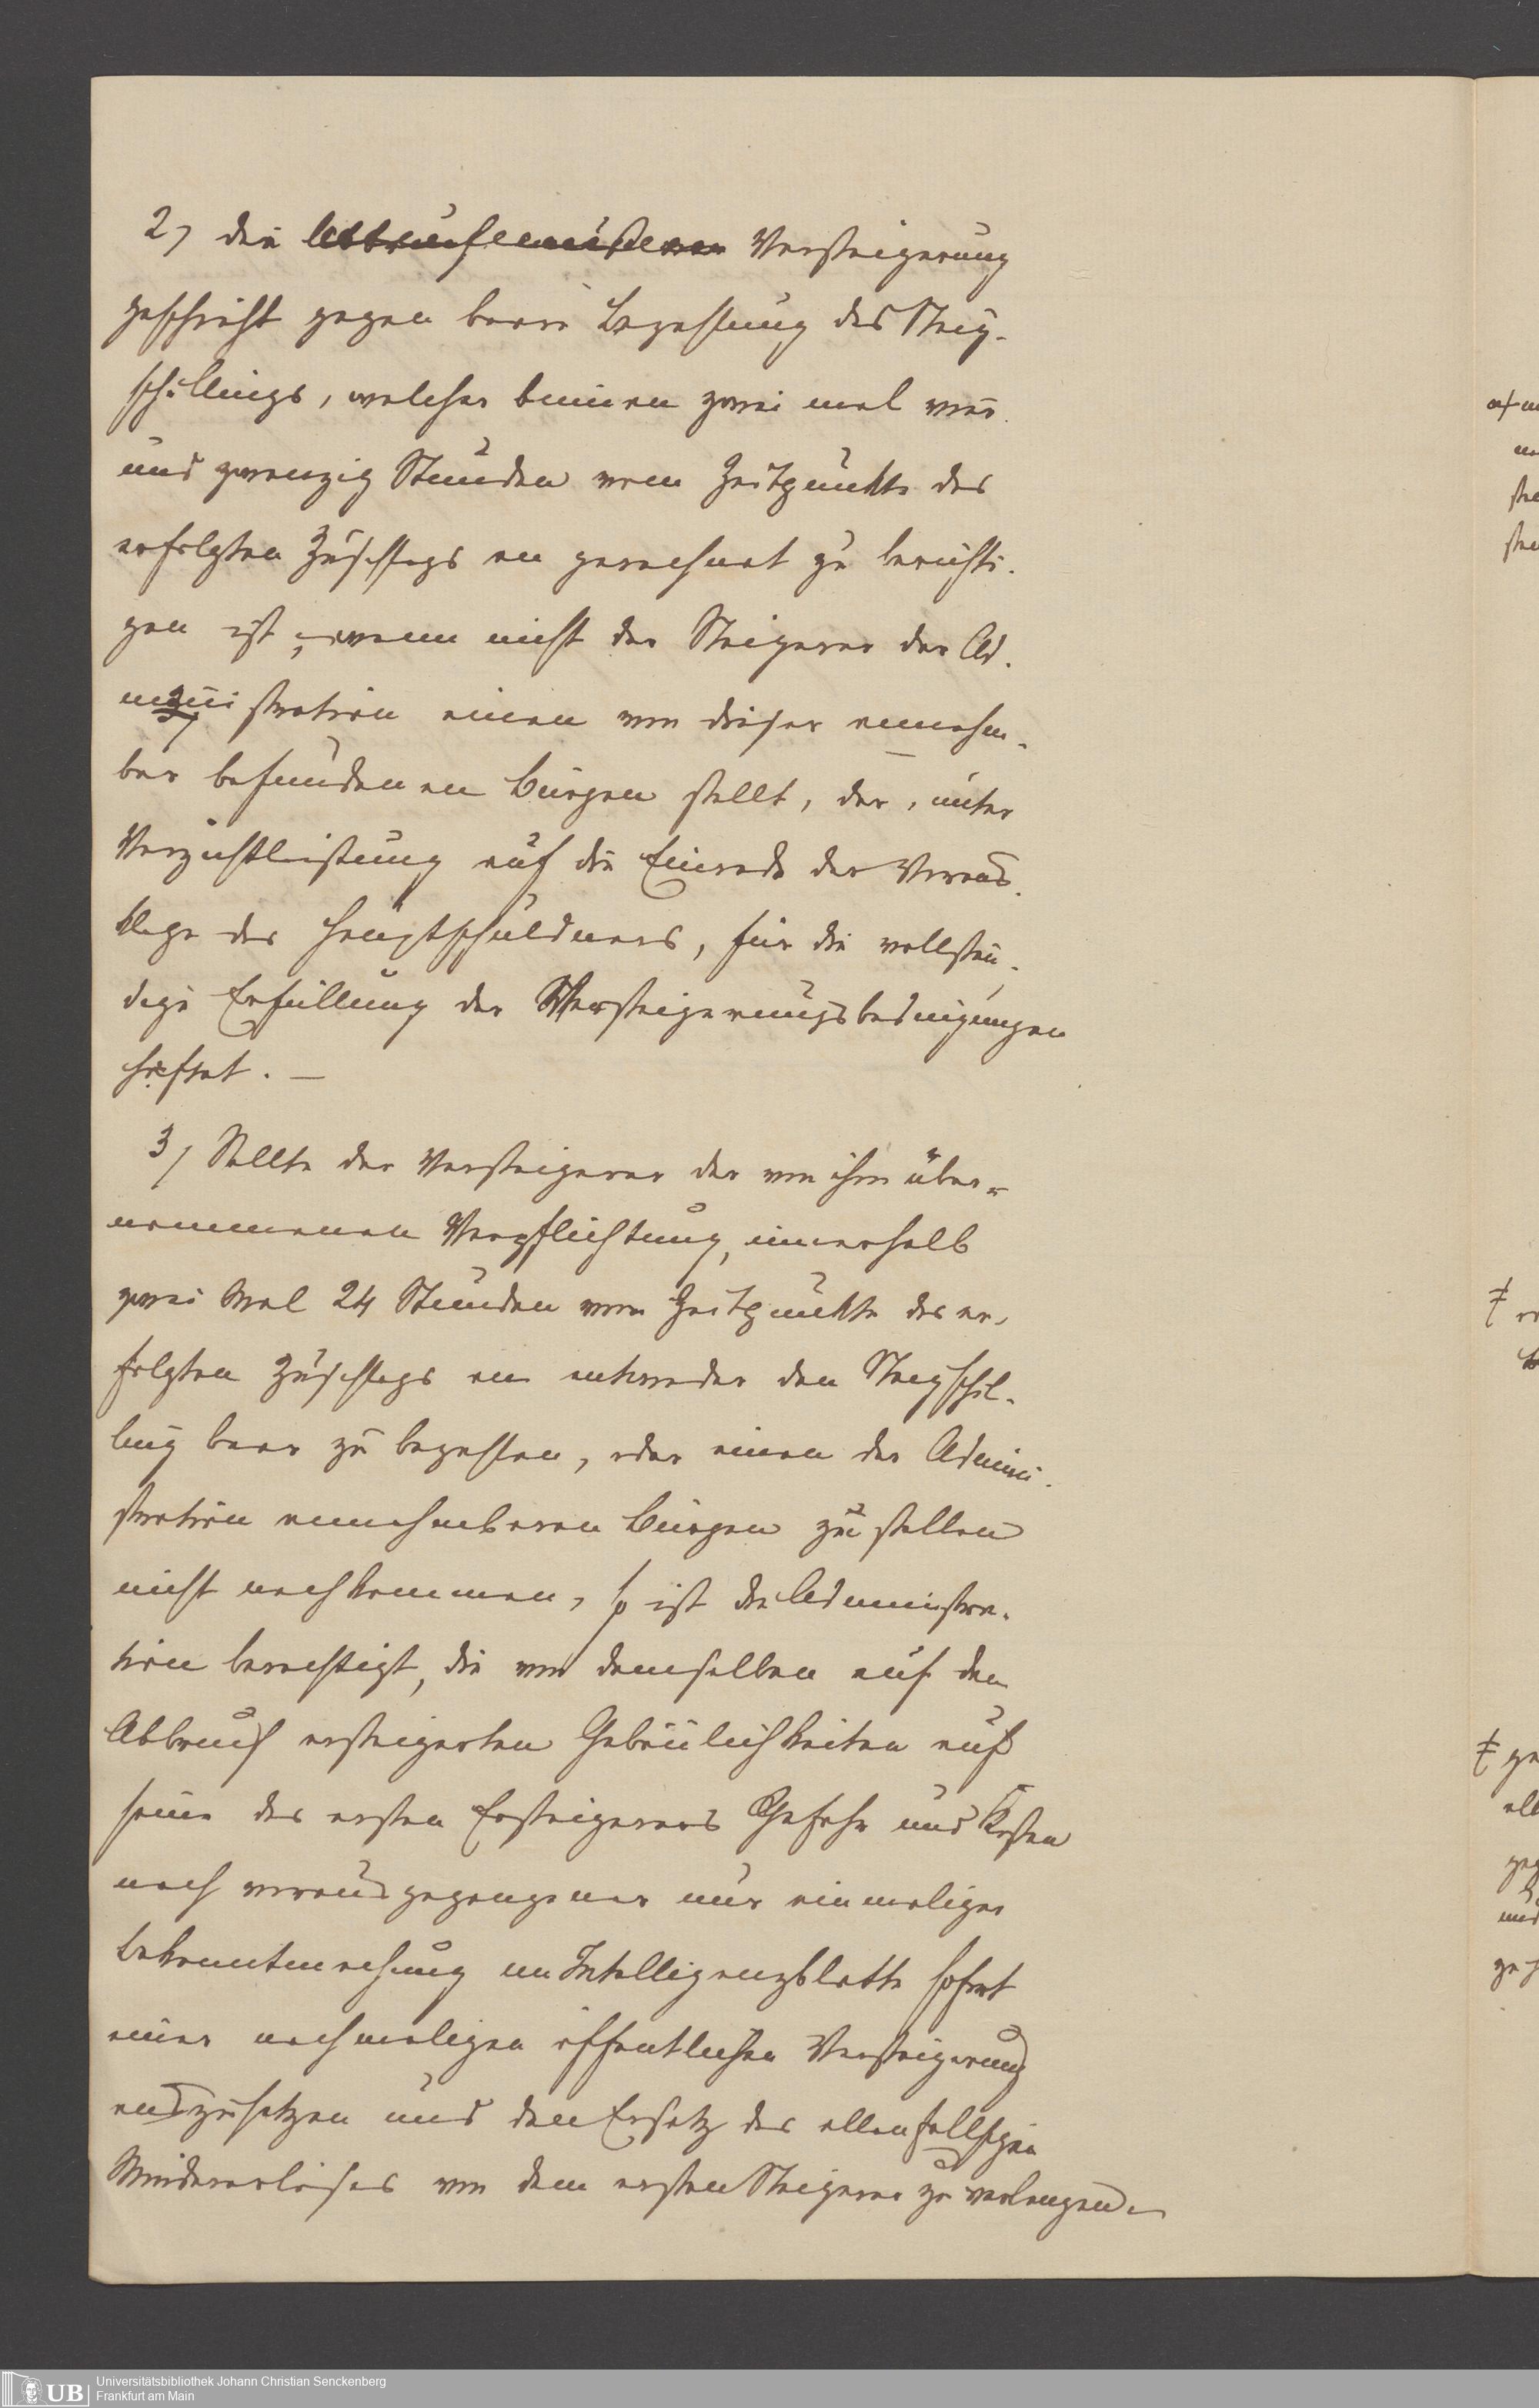 2) die Versteigerung
geschieht gegen baare Bezahlung des Steig-
schillings, welcher binnen zwei mal vier
und zwanzig Stunden vom Zeitpunkte des
erfolgten Zuschlags an gerechnet zu berichti-
gen ist, wenn nicht der Steigerer der Ad-
ministration einen von dieser annehm-
bar befundenen Bürgen stellt, der, unter
Verzichtleistung auf die Einrede der Voraus-
klage des Hauptschuldners, für die vollstän-
dige Erfüllung der Versteigerungsbedingungen
haftet. —
3) Sollte der Versteigerer der von ihm über-
nommenen Verpflichtung, innerhalb
zwei Mal 24 Stunden vom Zeitpunkte des er-
folgten Zuschlags an entweder den Steigschil-
ling baar zu bezahlen, oder einen der Admini-
stration annehmbaren Bürgen zu stellen
nicht nachkommen, so ist die Administra-
tion berechtigt, die von demselben auf den
Abbruch ersteigerten Gebäulichkeiten auf
seine des ersten Ersteigerers Gefahr und Kosten
nach vorausgegangener nur einmaliger
Bekanntmachung im Intelligenzblatte sofort
einer nochmaligen öffentlichen Versteigerung
auszusetzen und den Ersatz des allenfallsigen
Mindererlöses von dem ersten Steigerer zu verlangen. —
UB Universitätsbibliothek Johann Christian Senckenberg
Frankfurt am Main